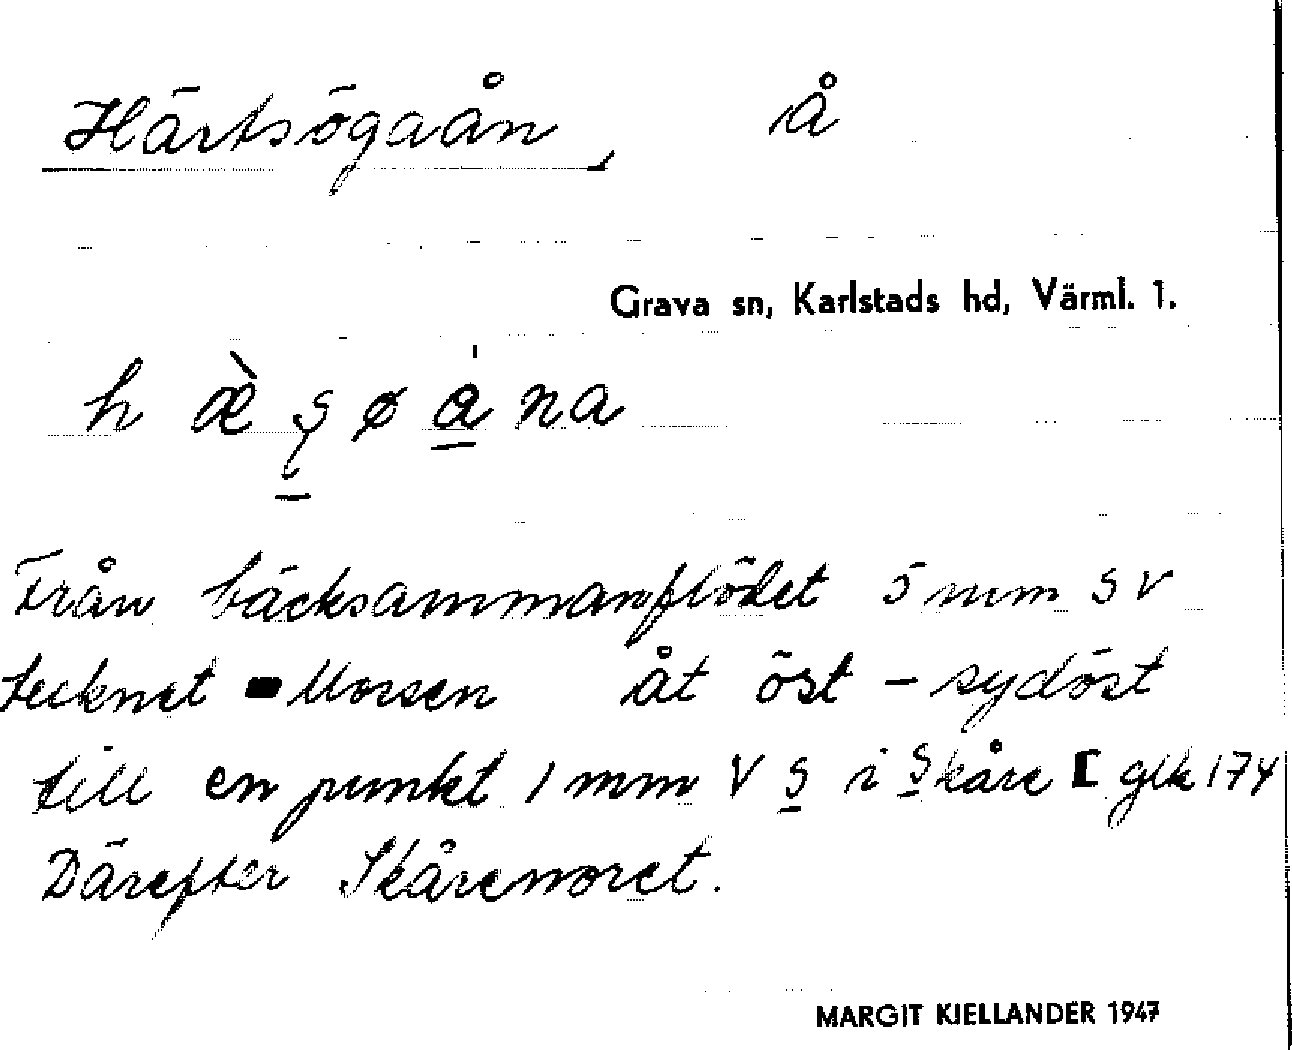 Härtsögaån, å
Grava sn, Karlstads hd, Värml. 1.
Från bäcksammanflödet 5 mm SV
tecknet Mossen åt öst - sydöst
till en punkt 1 mm V S i Skåre [ glk 174
Därefter Skårenoret.
MARGIT KIELLANDER 1947